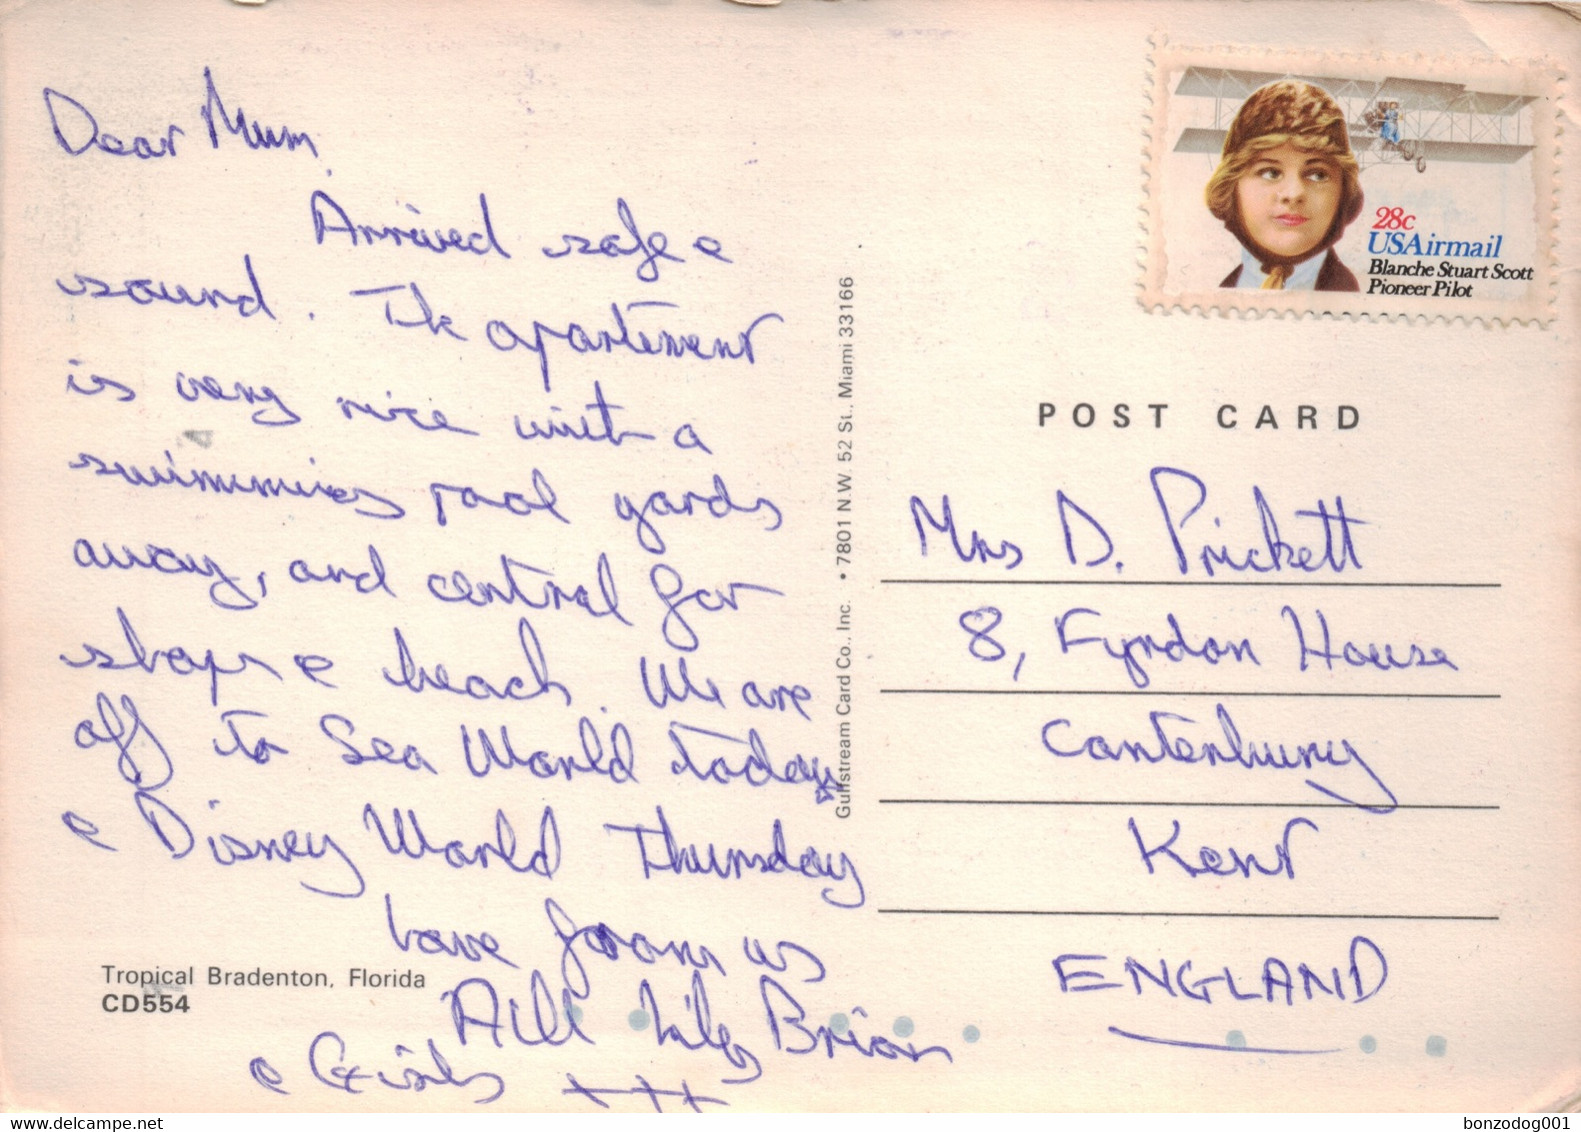 Dear Mum,
Arrived safe &
sound. The apartement
is very nice with a
swimming pool yards
away, and central for
shops & beach. We are
off to Sea World today
& Disney World Thursday
Love from us
All Brian
& Girls +++
Tropical Bradenton, Florida
CD554
Gulfstream Card Co., Inc. • 7801 N.W. 52 St., Miami 33166
28c
USAirmail
Blanche Stuart Scott
Pioneer Pilot
POST CARD
Mrs D. Prickett
8, Fyndon House
Canterbury
Kent
ENGLAND
www.delcampe.net
bonzodog001